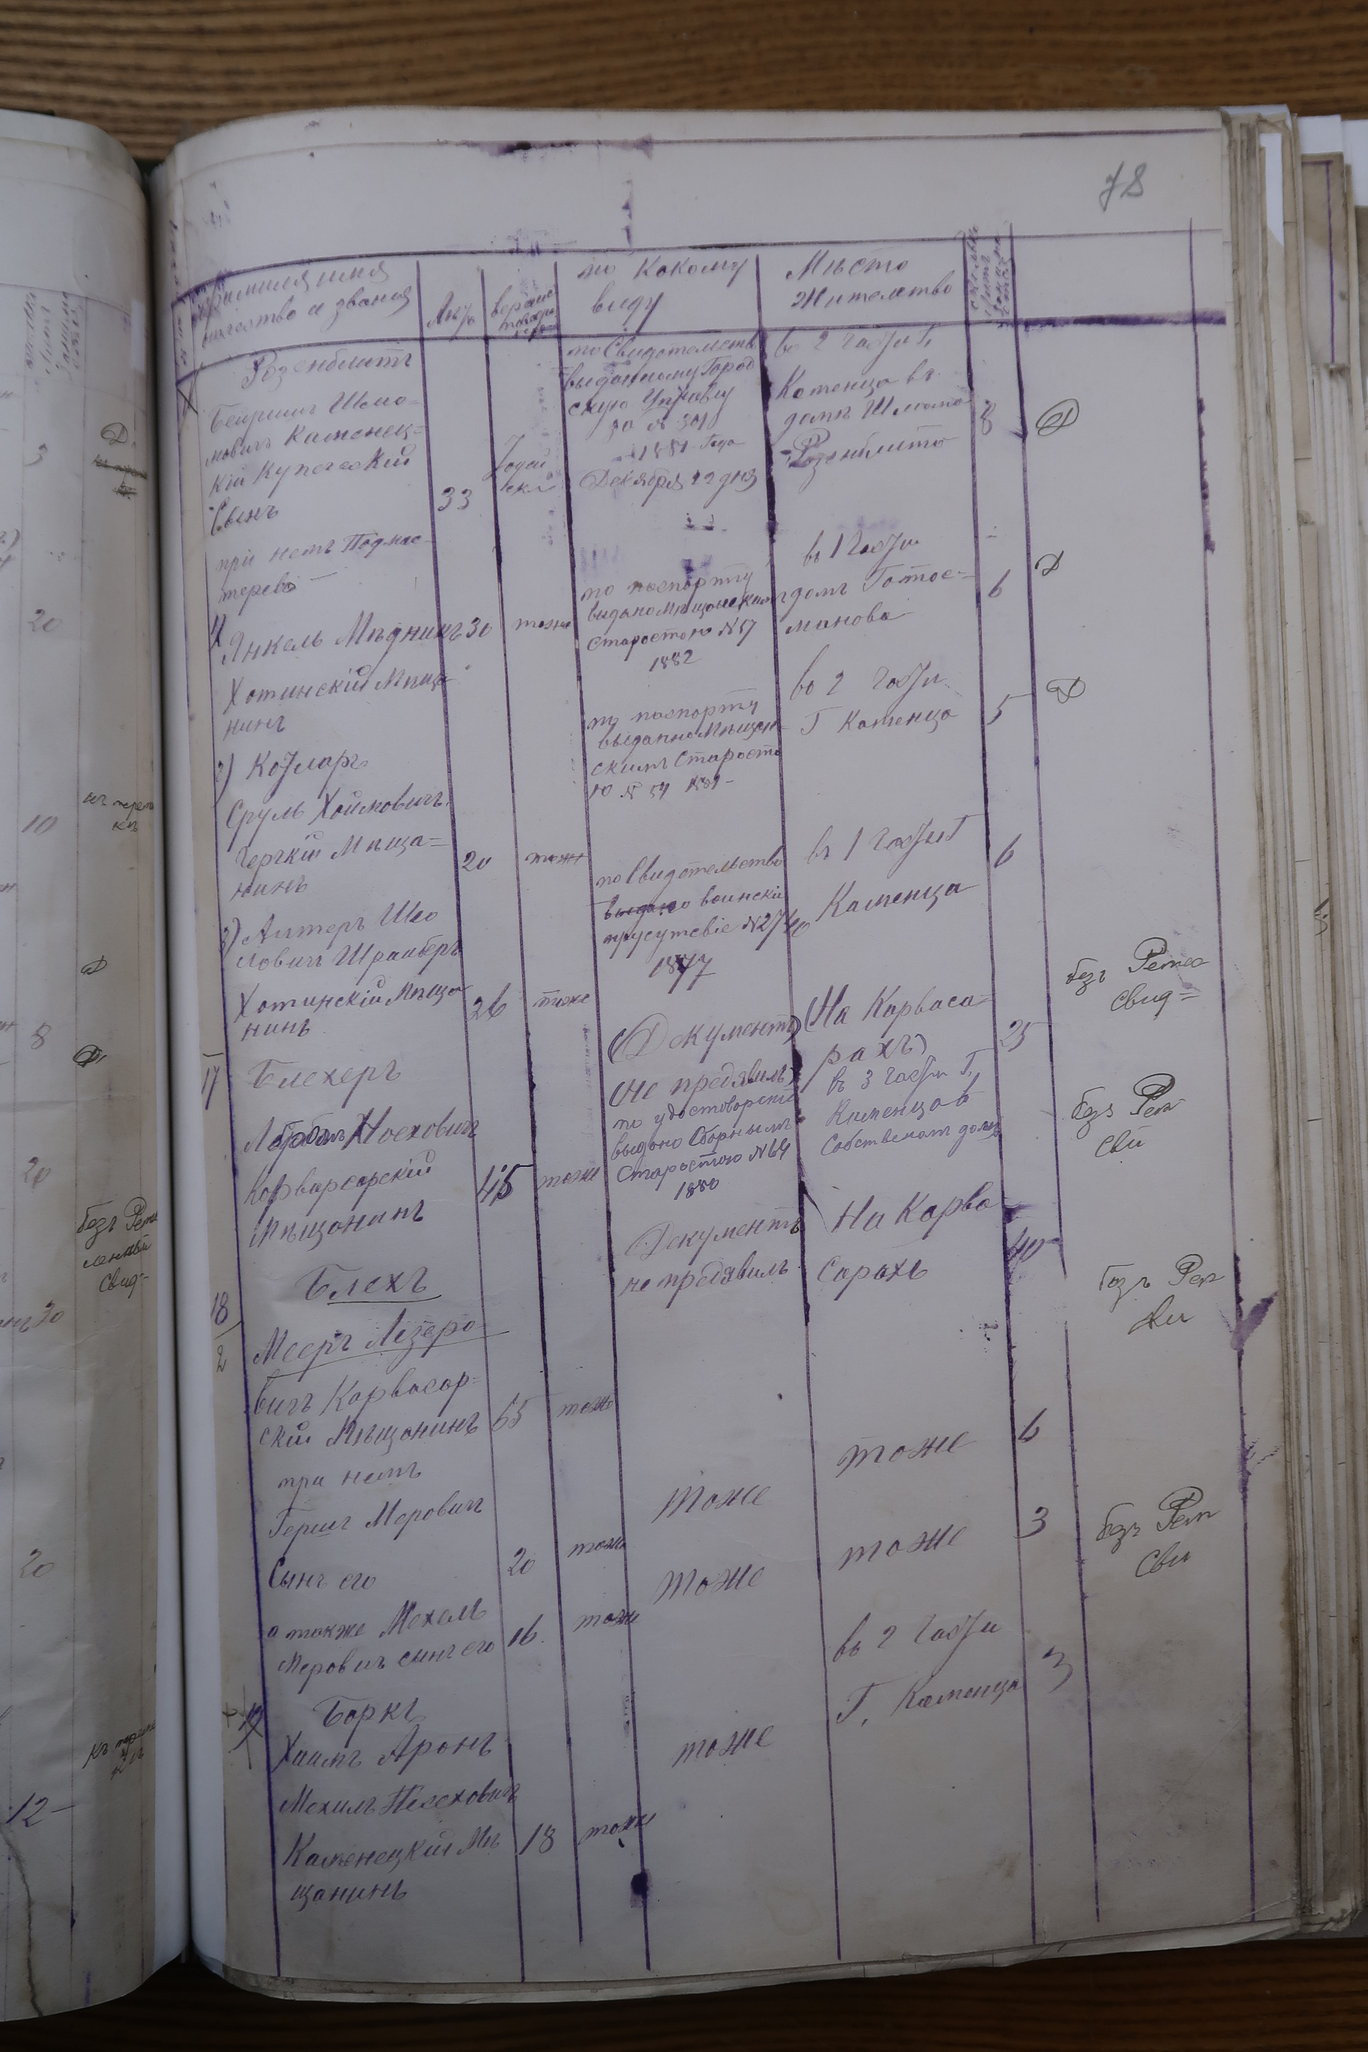 78
Фамилия имя
отчество и звания
Лѣтъ
по какому
виду
Мѣсто
Жительство
Розенблитъ
Бенюминъ Шмо-
мовичъ Каменец=
кій Купеческій
Сынъ
33
Іудей
ской
по Свидетельств
выданному Город
скую Управу
за № 301
1881 Года
Декабря 22 дня
во 2 части Г.
Каменца въ
домѣ Шлиома
Розенблита
8
при немъ Подмас-
терев
1)
Янкель Мѣдникъ
30
тоже
Хотинскій Мѣща
нинъ
по паспорту
выдано Мѣщанским
старостою № 57
1882
въ 1 части
домъ
6
2) Котляръ
Сруль Хаимовичъ
Мѣща=
нинъ
20
тоже
по паспорту
выданно Мѣщан
скимъ Старосто
ю № 54 1881
во 2 части
Г Каменца
5
3) Алтеръ Шло
мовичъ Шрайберъ
Хотинскій Мѣща
нинъ
26
тоже
по Свидетельство
выдано воинскій
присутствіе № 2740
1877
въ 1 части Г
Каменца
6
17
Блехеръ
Носховичъ
Карвасарскій
Мѣщанинъ
45
тоже
(Документъ)
(Не предявилъ)
по удостоверенію
выдано Сборнымъ
Старостою № 64
1880
(На Карваса
рахъ)
въ 3 части Г.
Каменца в
Собственномъ домѣ
25
безъ Ремес
свид=
безъ Рем
Сви
18
2
Блехъ
Мееръ Лезеро
вичъ Карвасар=
скій Мѣщанинъ
65
тоже
Документъ
не предявилъ
На Карва
сарахъ
40
безъ Рем
при немъ
Гершъ Меровичъ
Сынъ его
20
тоже
тоже
тоже
6
а также Мехель
Меровичъ сынъ его
16
тоже
тоже
тоже
3
безъ Рем
Сви
19
Боркъ
Хаимъ Аронъ
Мехилъ Пейсховичъ
Каменецкій Мѣ
щанинъ
18
тоже
тоже
въ 2 части
Г. Каменца
3
3
20
10
8
20
безъ Реме
сленный
Свид=
30
20
12